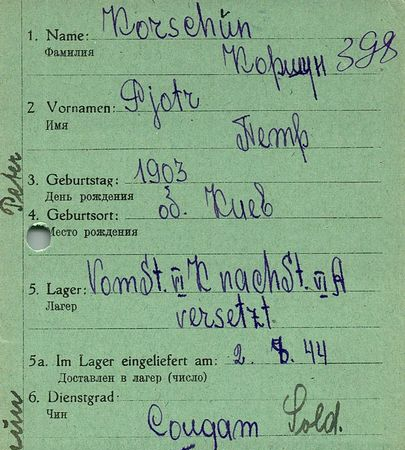 1. Name: Korschün
Фамилия
Коршун 398
2 Vornamen: Pjotr
Имя
Петр
Peter
3. Geburtstag: 1903
День рождения
4. Geburtsort: об. Киев
Место рождения
5. Lager: Vom St. VI K nach St. VI A
Лагер
versetzt.
5a. Im Lager eingeliefert am: 2. 8. 44
Доставлен в лагер (число)
6. Dienstgrad:
Чин
Солдат Sold.